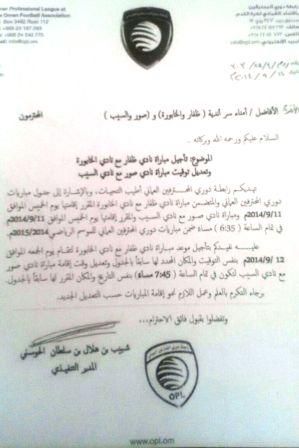 Oman Football Association
www.opl.om
الأفاضل / أمناء سر أندية ( ظفار والخابورة ) و (صور والسيب ) المحترمون
السلام عليكم ورحمة الله وبركاته ..
الموضوع: تأجيل مباراة نادي ظفار مع نادي الخابورة
وتعديل توقيت مباراة نادي صور مع نادي السيب
تهديكم رابطة دوري المحترفين العماني أطيب التحيات، وبالإشارة إلى جدول مباريات
دوري المحترفين العماني والمتضمن مباراة نادي ظفار مع نادي الخابورة المقرر إقامتها يوم الخميس الموافق
2014/9/11م ومباراة نادي صور مع نادي السيب والمقرر إقامتها يوم الخميس الموافق 2014/9/11م
في تمام الساعة ( 6:35 ) مساءً ضمن مباريات دوري المحترفين العماني للموسم الرياضي 2015/2014م
عليه نفيدكم بتأجيل موعد مباراة نادي ظفار مع نادي الخابورة لتقام يوم الجمعه الموافق
12 /2014/9م بنفس التوقيت والمكان المحدد لها سابقاً بالجدول، وتعديل وقت إقامة مباراة نادي صور
مع نادي السيب لتكون في تمام الساعة (7:45 مساءً) بنفس التاريخ والمكان المقرر لها سابقاً بالجدول.
برجاء التكرم بالعلم وعمل اللازم نحو إقامة المباريات حسب التعديل الجديد.
وتفضلوا بقبول فائق الاحترام،،،
شبيب بن هلال بن سلطان الحوسني
المدير التنفيذي
OPL
www.opl.om